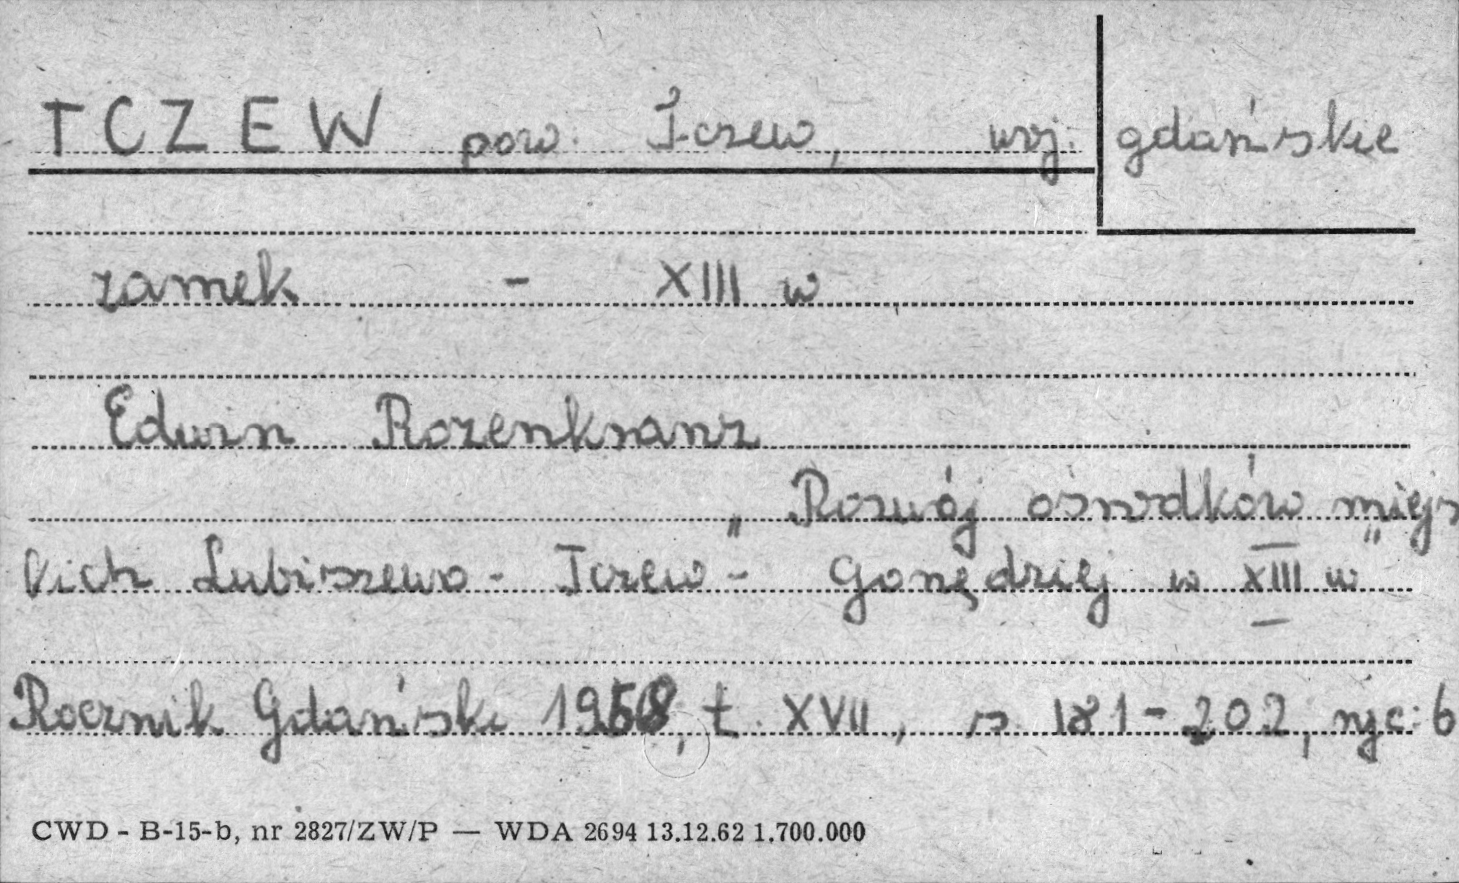 TCZEW pow. Tczew, woj. gdańskie
zamek - XIII w
Edwin Rozenkranz
„Rozwój ośrodków miejs
kich Lubiszewo - Tczew - Gorzędziej w XIII w"
Rocznik Gdański 1958, t. XVII, s 181-202, ryc: 6
CWD - B-15-b, nr 2827/ZW/P — WDA 2694 13.12.62 1.700.000